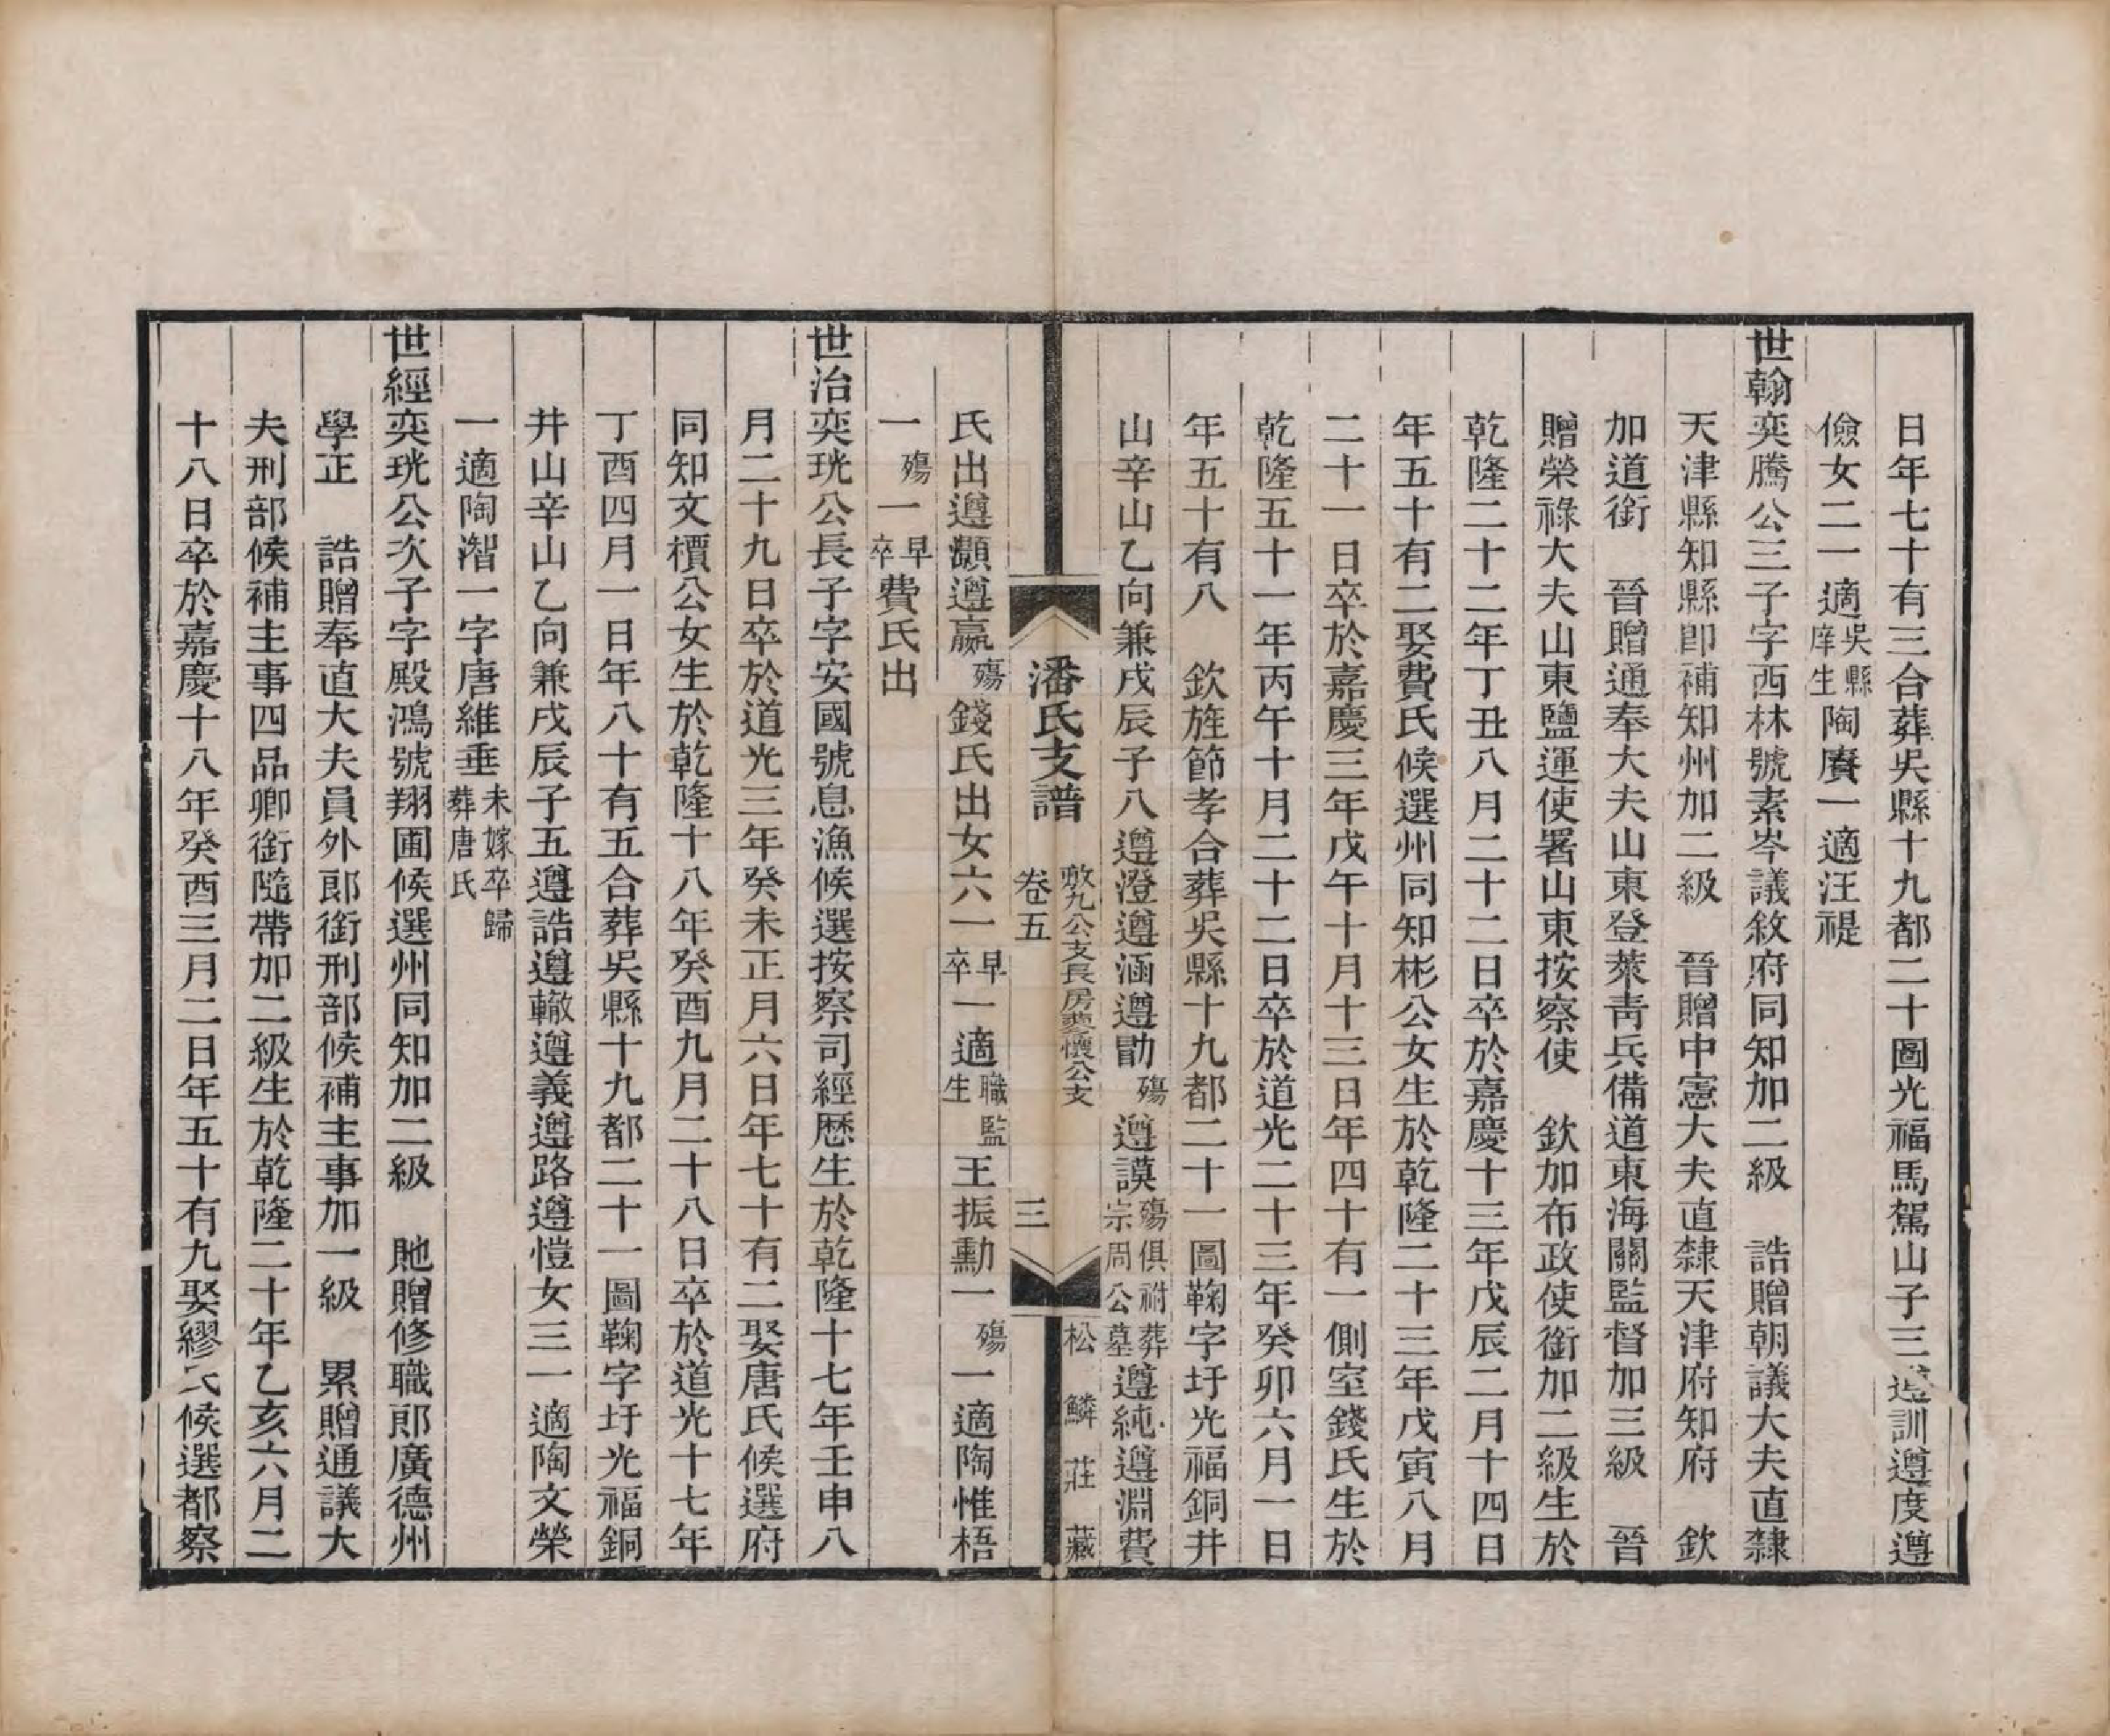 日年七十有三合葬吳縣十九都二十圖光福馬駕山子三遵訓遵度遵
儉女二一適吳縣庠生陶賡一適汪禔
世翰奕騰公三子字西林號素岑議敘府同知加二級　誥贈朝議大夫直隸
天津縣知縣卽補知州加二級　晉贈中憲大夫直隸天津府知府　欽
加道銜　晉贈通奉大夫山東登萊靑兵備道東海關監督加三級　晉
贈榮祿大夫山東鹽運使署山東按察使　欽加布政使銜加二級生於
乾隆二十二年丁丑八月二十二日卒於嘉慶十三年戊辰二月十四日
年五十有二娶費氏候選州同知彬公女生於乾隆二十三年戊寅八月
二十一日卒於嘉慶三年戊午十月十三日年四十有一側室錢氏生於
乾隆五十一年丙午十月二十二日卒於道光二十三年癸卯六月一日
年五十有八　欽旌節孝合葬吳縣十九都二十一圖鞠字圩光福銅井
山辛山乙向兼戌辰子八遵澄遵涵遵勖殤遵謨殤俱祔葬宗周公墓遵純遵淵費
潘氏支譜　卷五　敷九公支長房夔懷公支　三　松鱗莊藏
氏出遵灝遵嬴殤錢氏出女六一早卒一適職監生王振勳一殤一適陶惟梧
一殤一早卒費氏出
世治奕珖公長子字安國號息漁候選按察司經歷生於乾隆十七年壬申八
月二十九日卒於道光三年癸未正月六日年七十有二娶唐氏候選府
同知文櫝公女生於乾隆十八年癸酉九月二十八日卒於道光十七年
丁酉四月一日年八十有五合葬吳縣十九都二十一圖鞠字圩光福銅
井山辛山乙向兼戌辰子五遵誥遵轍遵義遵路遵愷女三一適陶文榮
一適陶潪一字唐維垂未嫁卒歸葬唐氏
世經奕珖公次子字殿鴻號翔圃候選州同知加二級　貤贈修職郎廣德州
學正　誥贈奉直大夫員外郎銜刑部候補主事加一級　累贈通議大
夫刑部候補主事四品卿銜隨帶加二級生於乾隆二十年乙亥六月二
十八日卒於嘉慶十八年癸酉三月二日年五十有九娶繆氏候選都察